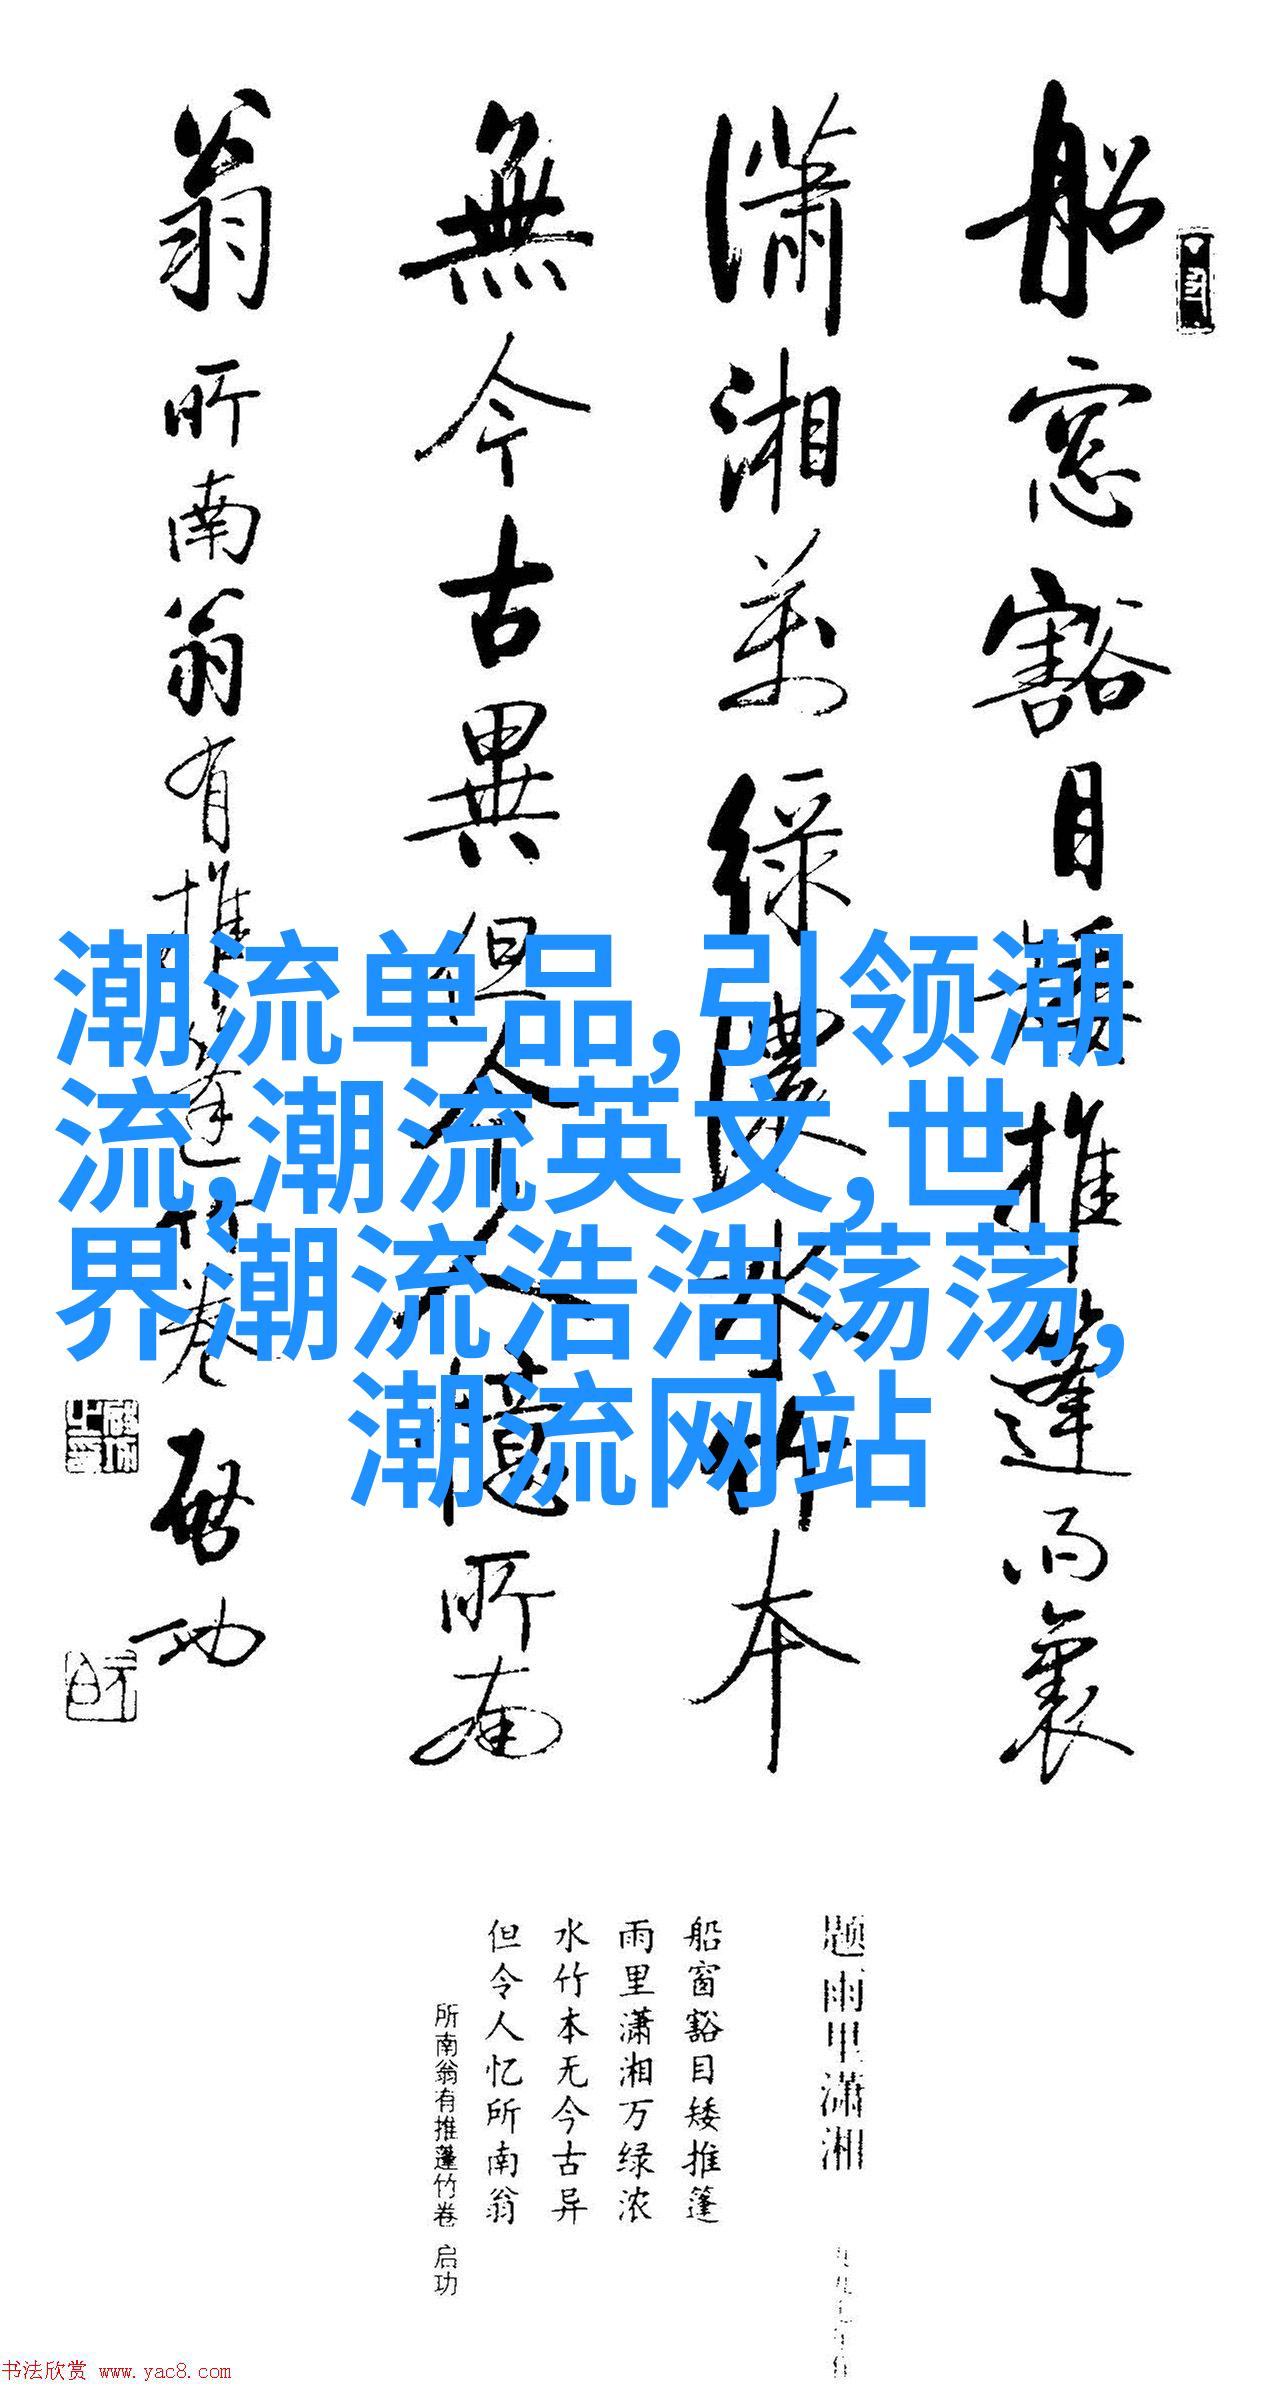 船窓豁目矮推篷雨裏
瀟湘萬緑濃水竹本
無今古異但令人憶所南
翁 所南翁有推篷竹卷 啓功
潮流单品,引领潮
流,潮流英文,世
界潮流浩浩荡荡,
潮流网站
题雨里潇湘
船窗豁目矮推篷
雨里潇湘万绿浓
水竹本无今古异
但令人忆所南翁
所南翁有推蓬竹卷 启功
书法欣赏 www.yac8.com